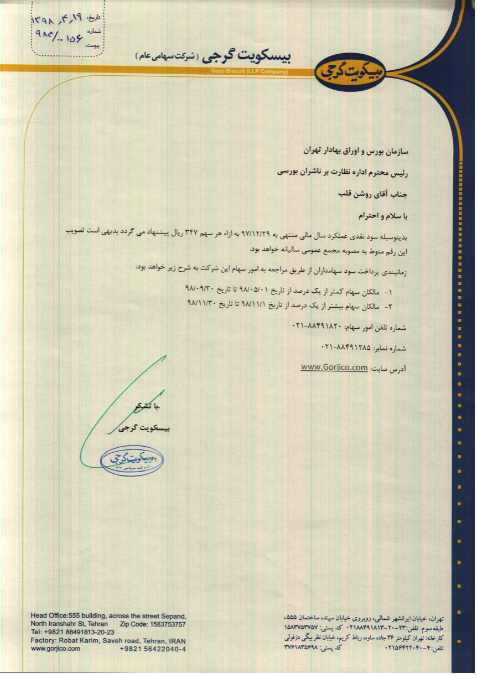 تاریخ: ۱۳۹۸,۴,۱۹
شماره: ۹۸۳/۰۰۱۵۶
پیوست:
بیسکویت گرجی (شرکت سهامی عام)
Gorji Biscuit (LLP Company)
بیسکویت گرجی
سازمان بورس و اوراق بهادار تهران
رئیس محترم اداره نظارت بر ناشران بورسی
جناب آقای روشن قلب
با سلام و احترام
بدینوسیله سود نقدی عملکرد سال مالی منتهی به ۹۷/۱۲/۲۹ به ازاء هر سهم ۳۴۷ ریال پیشنهاد می گردد بدیهی است تصویب
این رقم منوط به مصوبه مجمع عمومی سالیانه خواهد بود.
زمانبندی پرداخت سود سهامداران از طریق مراجعه به امور سهام این شرکت به شرح زیر خواهد بود:
۱- مالکان سهام کمتر از یک درصد از تاریخ ۹۸/۰۵/۰۱ تا تاریخ ۹۸/۰۹/۳۰
۲- مالکان سهام بیشتر از یک درصد از تاریخ ۹۸/۱۱/۱ تا تاریخ ۹۸/۱۱/۳۰
شماره تلفن امور سهام: ۸۸۴۹۱۸۲۰-۰۲۱
شماره نمابر: ۸۸۴۹۱۲۸۵-۰۲۱
آدرس سایت: www.Gorjico.com
با تشکر.
بیسکویت گرجی
بیسکویت گرجی
Head Office:555 building, across the street Sepand,
North Iranshahr St, Tehran Zip Code: 1583753757
Tel: +9821 88491813-20-23
Factory: Robat Karim, Saveh road, Tehran, IRAN
www.gorjico.com +9821 56422040-4
تهران، خیابان ایرانشهر شمالی، روبروی خیابان سپند، ساختمان ۵۵۵،
طبقه سوم تلفن: ۲۳-۲۰-۰۲۱۸۸۴۹۱۸۱۳ کد پستی: ۱۵۸۳۷۵۳۷۵۷
کارخانه: تهران کیلومتر ۳۴ جاده ساوه، رباط کریم، خیابان نظر بیگی دزفولی
تلفن: ۴-۰۲۱۵۶۴۲۲۰۴۰ کد پستی: ۳۷۶۱۸۳۵۶۹۸